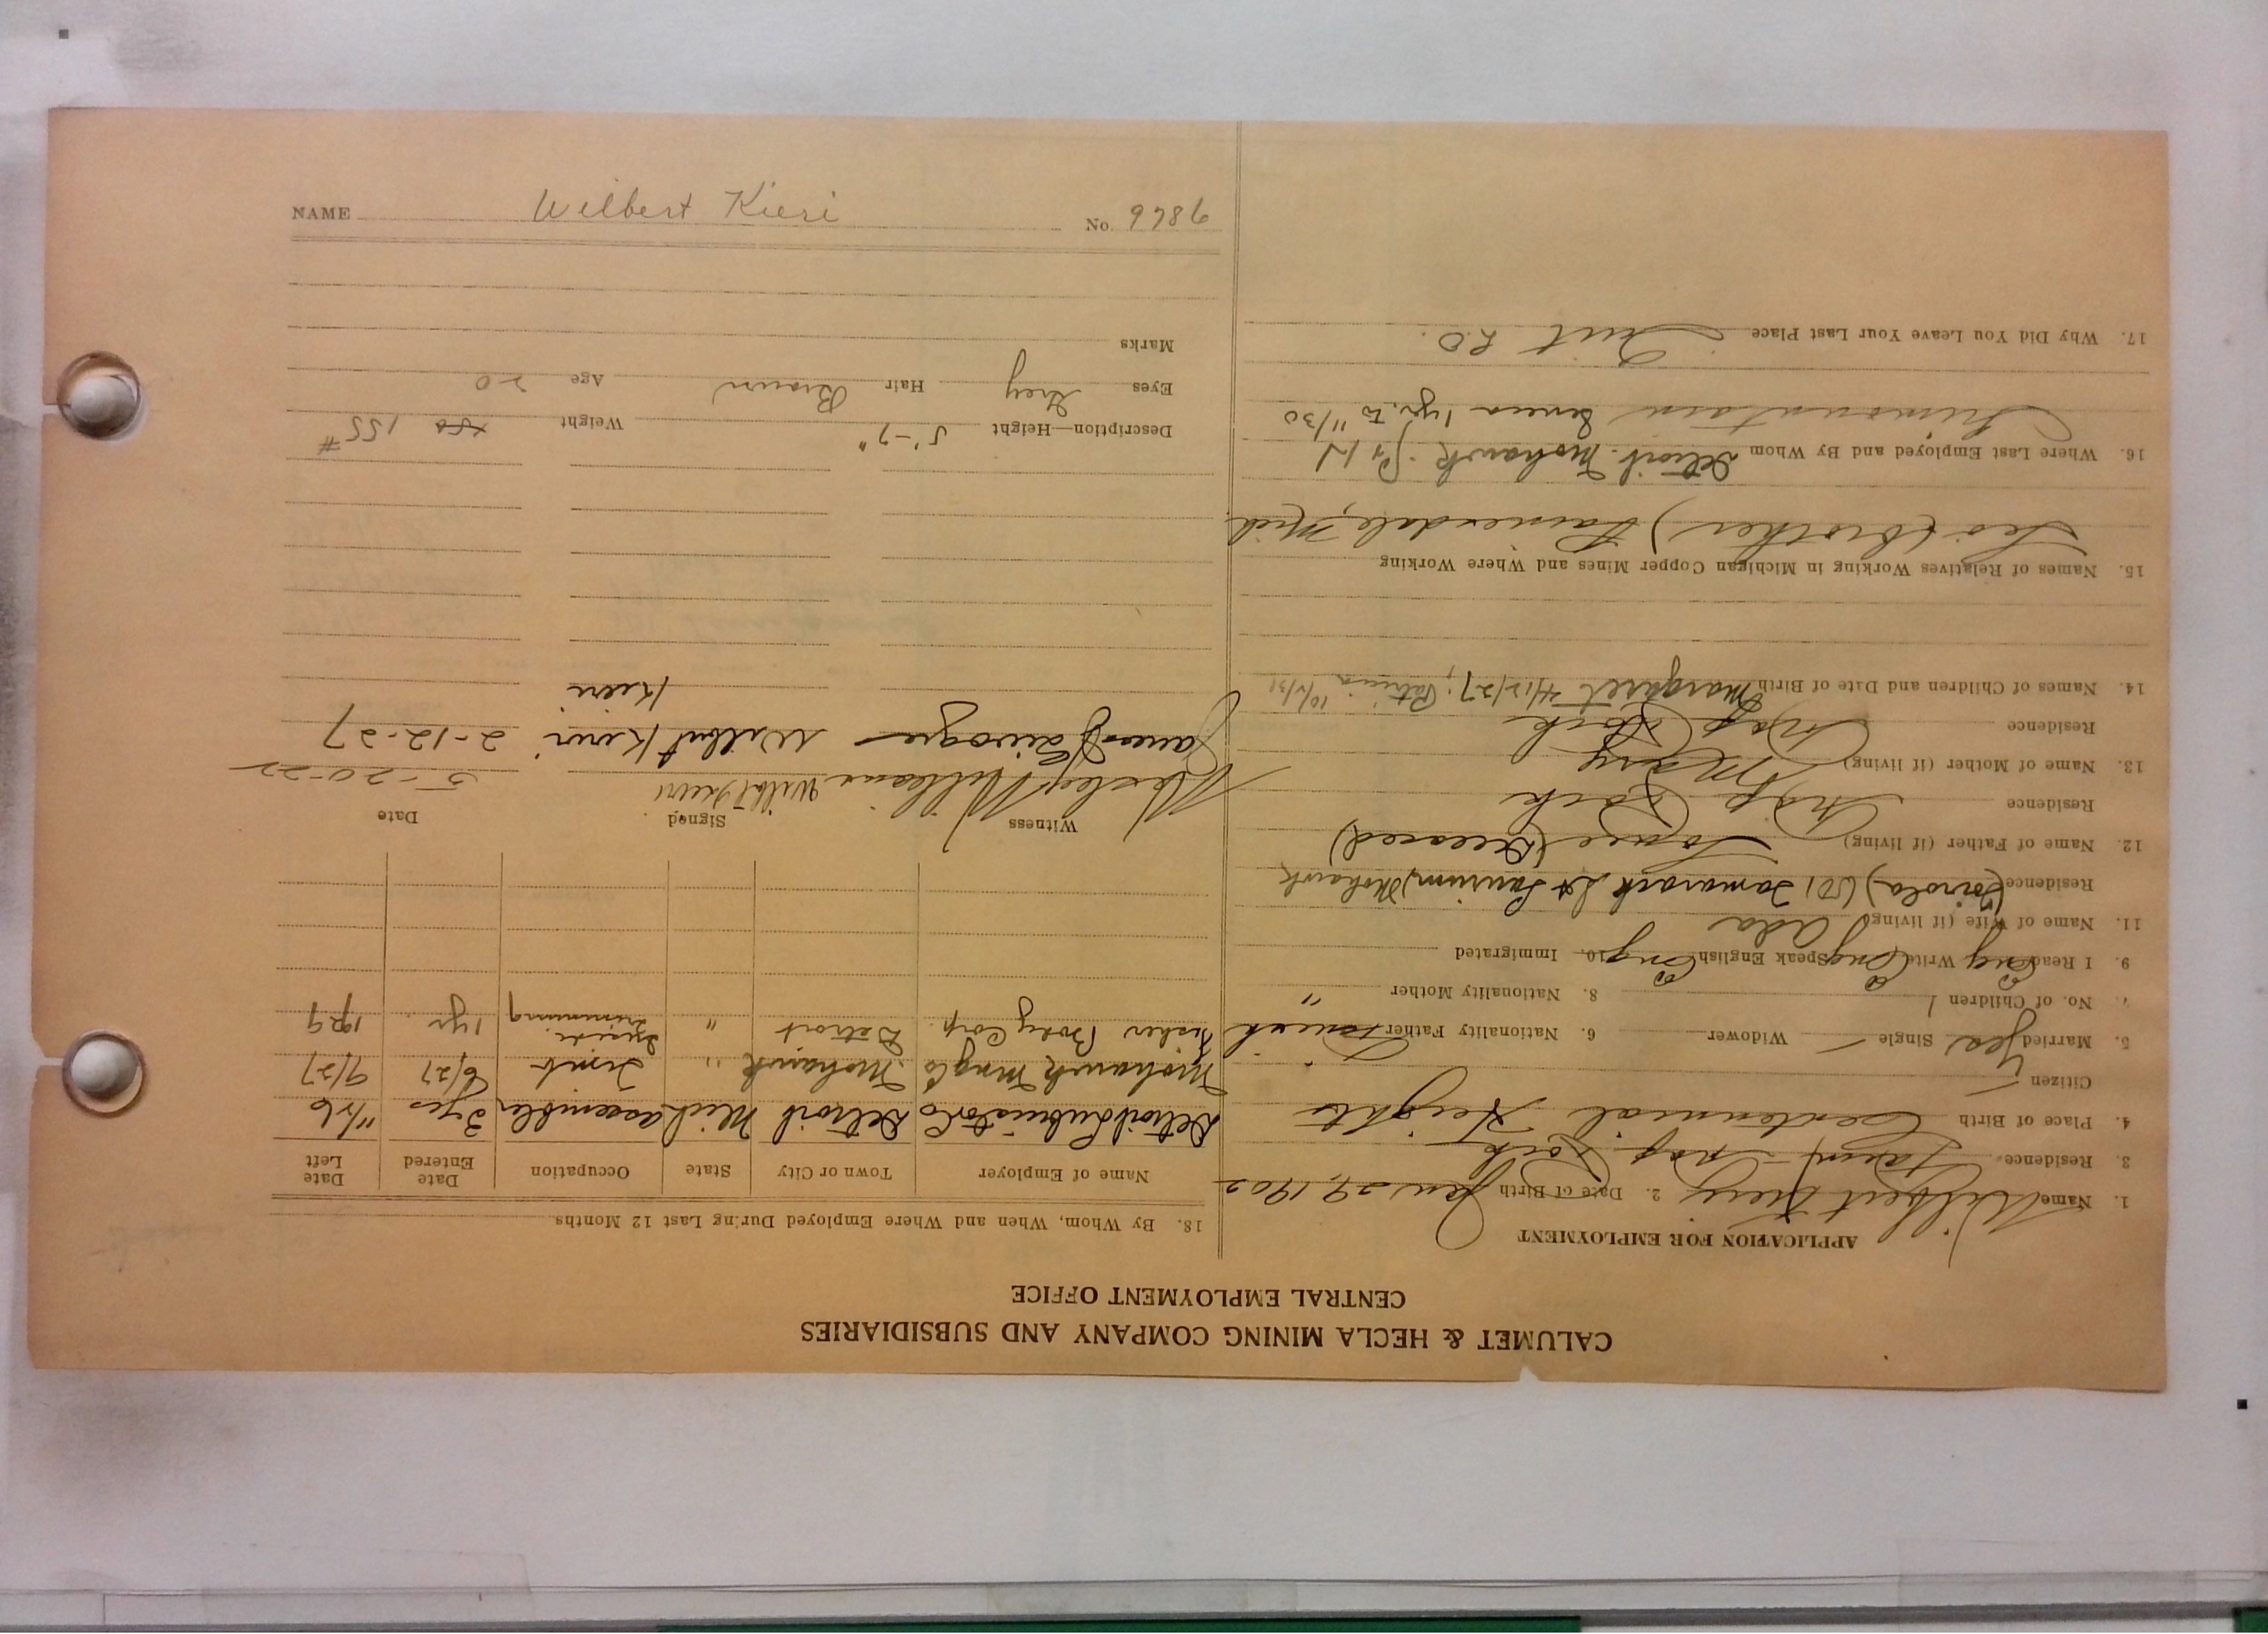 CALUMET & HECLA MINING COMPANY AND SUBSIDIARIES
CENTRAL EMPLOYMENT OFFICE
APPLICATION FOR EMPLOYMENT
1. Name Wilbert Kieri 2. Date of Birth Jan 29, 1902
3. Residence Farm - Trap Rock
4. Place of Birth Centennial Heights
Citizen
5. Married Yes Single — Widower 6. Nationality Father Finnish
7. No. of Children 1 8. Nationality Mother "
9. I Read Eng Write Eng Speak English Eng 10. Immigrated
11. Name of Wife (if living) Ada
Residence (Tamarack St Laurium) Mohawk
12. Name of Father (if living) (Deceased)
Residence Trap Rock
13. Name of Mother (if living) Mary
Residence Trap Rock
14. Names of Children and Date of Birth Margaret 4/12/27; Patricia 10/1/31
15. Names of Relatives Working in Michigan Copper Mines and Where Working
Leo (Brother) Painesdale, Mich.
16. Where Last Employed and By Whom Detroit. Mohawk.
Seneca 1 yr. to 11/30
17. Why Did You Leave Your Last Place Quit L.O.
18. By Whom, When and Where Employed During Last 12 Months
Name of Employer Town or City State Occupation Date Entered Date Left
Detroit Lubricator Co Detroit Mich assembler 3 yrs 11/26
Mohawk Mng Co Mohawk " Timb 6/27 9/27
Fisher Body Corp. Detroit " trimming 1 yr. 1929
Witness Signed Date
Wesley Williams Wilbt Kieri 5-20-22
James Wilbert Kieri 2-12-27
Kieri
Description—Height 5'-7" Weight 150 155#
Eyes Grey Hair Brown Age 20
Marks
NAME Wilbert Kieri No. 9786